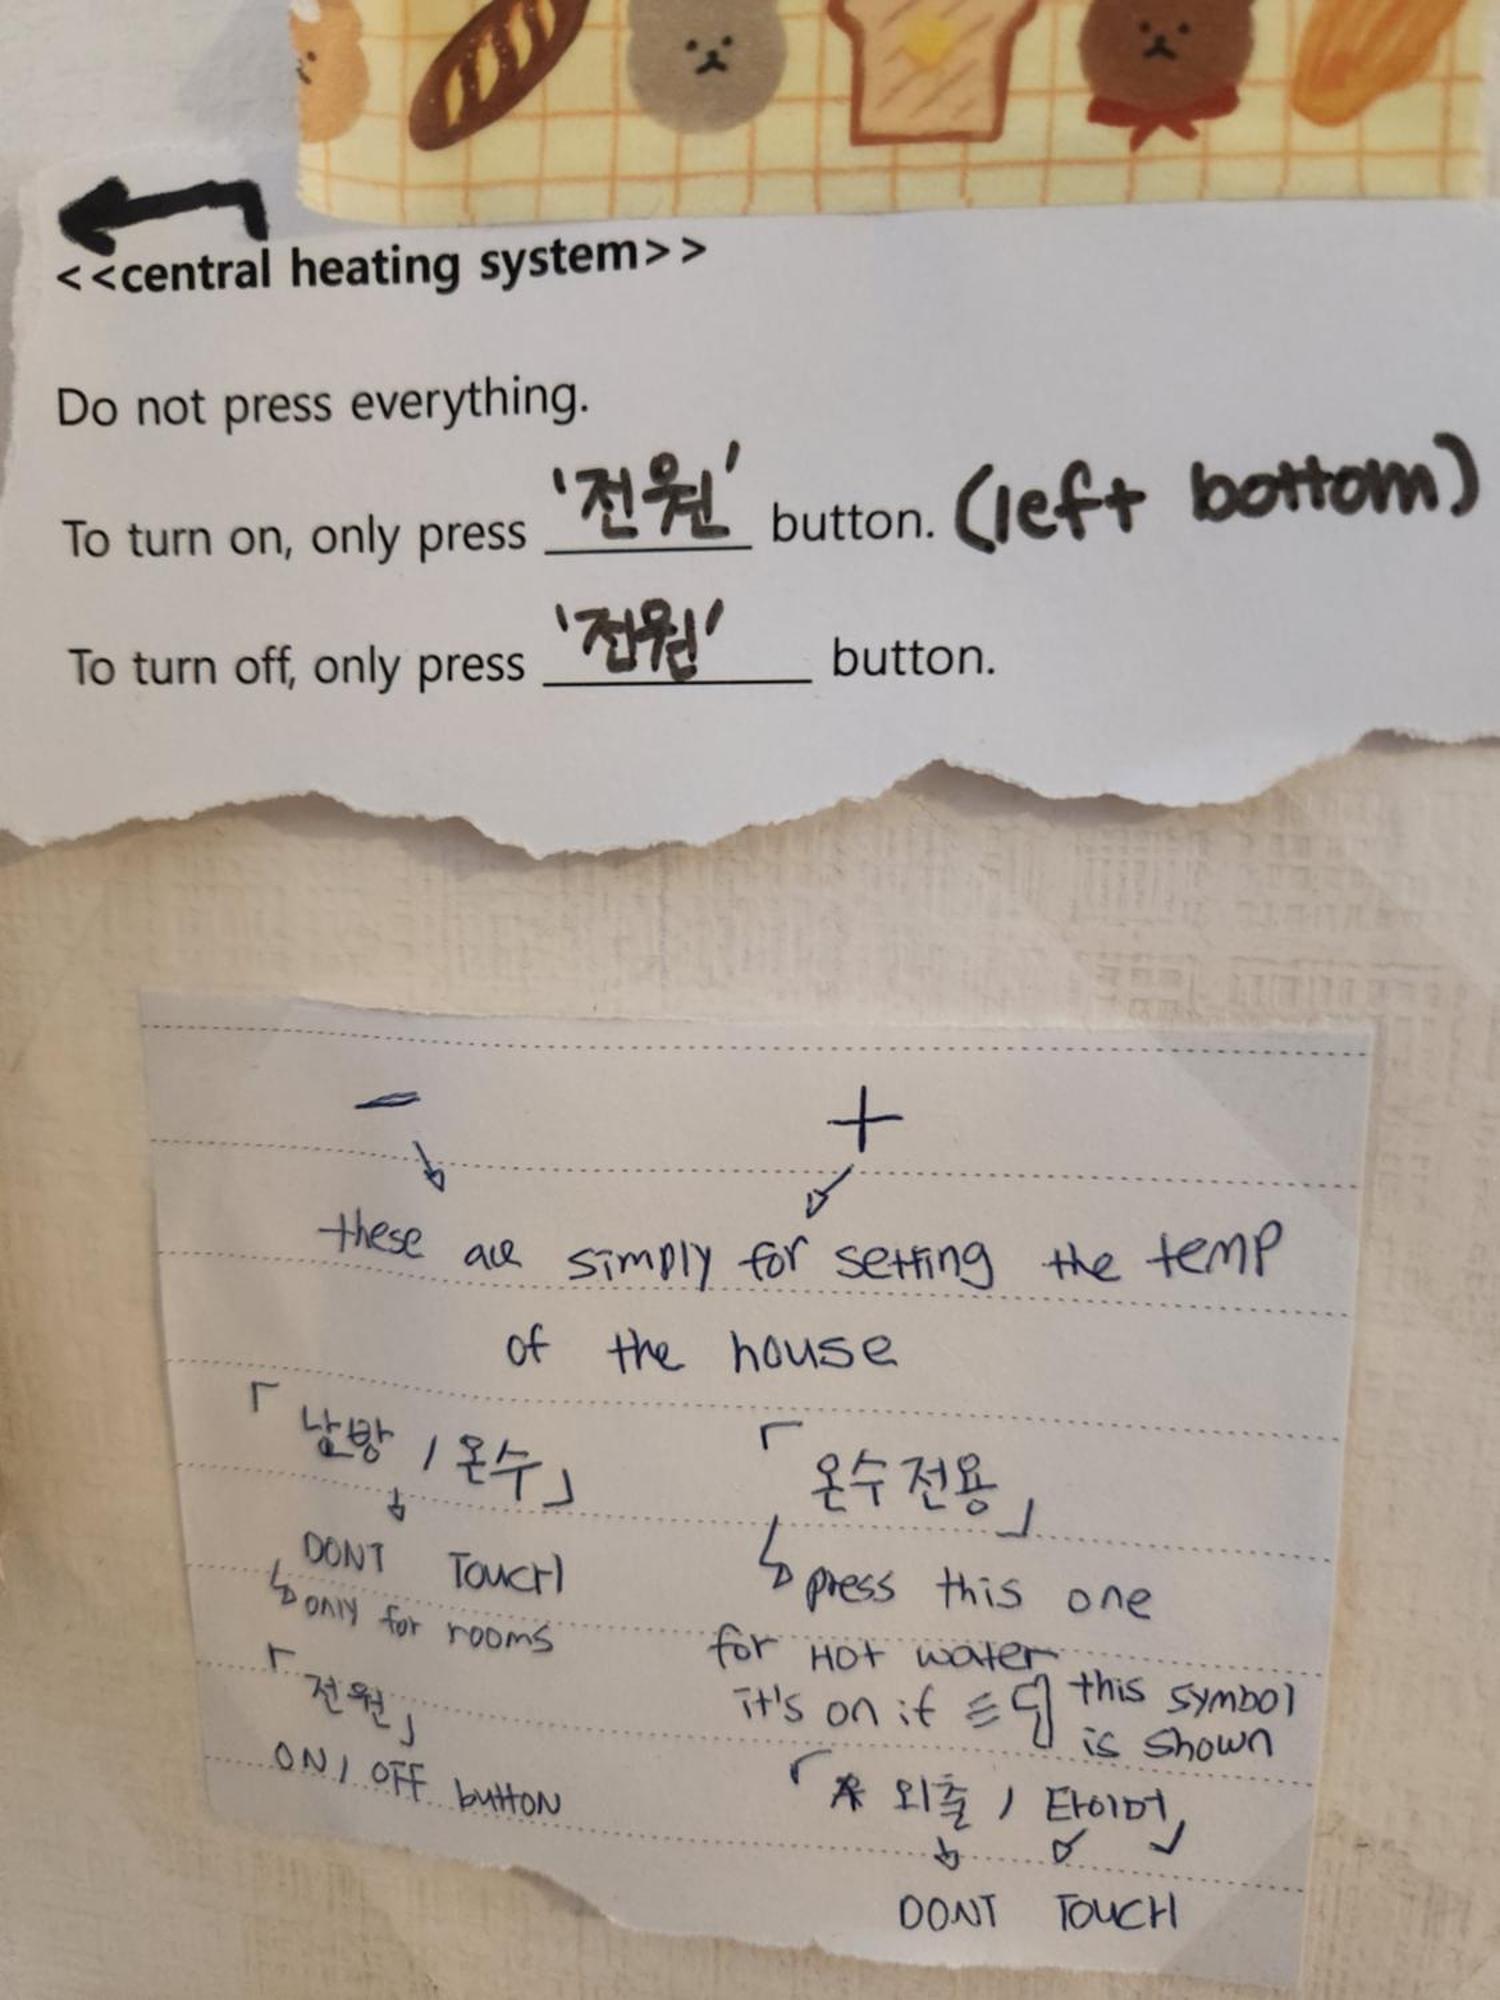 <<central heating system>>
Do not press everything.
To turn on, only press '전원' button. (left bottom)
To turn off, only press '전원' button.
- +
these are simply for setting the temp
of the house
「난방 / 온수」
DONT TOUCH
only for rooms
「전원」
ON / OFF button
「온수전용」
press this one
for HOT water
it's on if this symbol
is shown
「외출 / 타이머」
DONT TOUCH